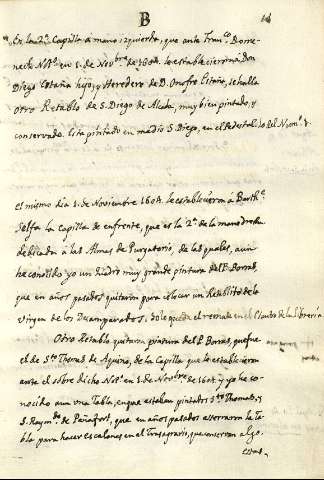 B
14
En la 2ª Capilla a mano izquierda, que ante Franco. Dome-
nech Noto. en 1. de Novbre. de 1604. lo establecieron a Don
Diego Catañá hijo, y Heredero de D. Onofre Catañá, se halla
otro Retablo de S. Diego de Alcala, muy bien pintado, y
conservado. Esta pintado en medio S. Diego, en el Pedestal
el mismo dia 1. de Noviembre 1604. le establecieron á Barthe.
la Capilla de enfrente, que es la 2ª de la mano drcha.
dedicada á las Almas de Purgatorio, de las quales, aun
he conocido yo un quadro muy grande pintura del P. Borras,
que en años pasados quitaron para colocar un Retablito de la
Virgen de los Desamparados. Solo queda el remate en el Claustro de la Libreria
Otro Retablo quitaron pintura del P. Borras, que fue
el de Sto. Thomas de Aquino, de la Capilla que le establecieron
ante el sobre dicho Noto. en 1. de Novbre. de 1604. y yo he co-
nocido aun una Tabla, en que estaban pintados Sto. Thomas, y
S. Raymdo. de Peñafort, que en años pasados aserraron la Ta-
bla para hacer escalones en el Trasagrario, que conservan algo.